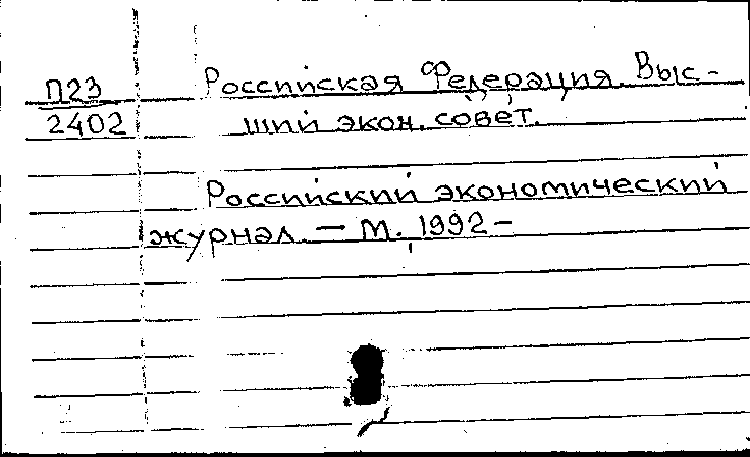 П23
2402
Российская Федерация. Выс-
ший экон. совет.
Российский экономический
журнал. — М., 1992 –